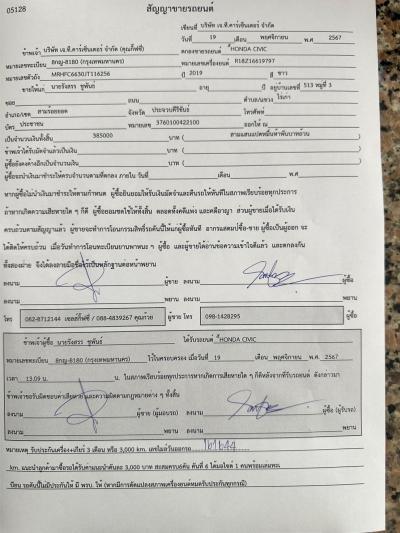 05128
สัญญาขายรถยนต์
เขียนที่ บริษัท เจ.ที.คาร์เซ็นเตอร์ จำกัด
วันที่ 19 เดือน พฤศจิกายน พ.ศ. 2567
ข้าพเจ้า บริษัท เจ.ที.คาร์เซ็นเตอร์ จำกัด (คุณกิ๊ฟซี่) ตกลงขายรถยนต์ HONDA CIVIC
หมายเลขทะเบียน 8กญ-8180 (กรุงเทพมหานคร) หมายเลขเครื่องยนต์ R18Z16619797
หมายเลขตัวถัง MRHFC6630JT116256 ปี 2019 สี ขาว
ขายให้แก่ นายรังสรร ชูพันธ์ อายุ ปี อยู่บ้านเลขที่ 513 หมู่ที่ 3
ซอย ถนน ตำบล/แขวง ไร่เก่า
อำเภอ/เขต สามร้อยยอด จังหวัด ประจวบคีรีขันธ์ โทรศัพท์
บัตร ประชาชน หมายเลข 3760100422100 ออกให้ ณ
เป็นจำนวนเงินทั้งสิ้น 385000 บาท ( สามแสนแปดหมื่นห้าพันบาทถ้วน )
ข้าพเจ้าได้รับมัดจำแล้วเป็นเงิน บาท ( )
ผู้ซื้อยังคงค้างอีกเป็นจำนวนเงิน บาท ( )
ผู้ซื้อจะนำเงินมาชำระให้ครบจำนวนตามที่ตกลง ภายใน วันที่ เดือน พ.ศ.
หากผู้ซื้อไม่นำเงินมาชำระตามกำหนด ผู้ซื้อยินยอมให้ริบเงินมัดจำและคืนรถให้ทันทีในสภาพเรียบร้อยทุกประการ
ถ้าหากเกิดความเสียหายใด ๆ ก็ดี ผู้ซื้อยอมชดใช้ให้ทั้งสิ้น ตลอดทั้งคดีแพ่ง และคดีอาญา ส่วนผู้ขายเมื่อได้รับเงิน
ครบถ้วนตามสัญญาแล้ว ผู้ขายจะทำการโอนกรรมสิทธิ์รถคันนี้ให้แก่ผู้ซื้อทันที อากรแสตมป์ซื้อ-ขาย ผู้ซื้อเป็นผู้ออก จะ
ได้คิดให้ครบถ้วน เมื่อวันทำการโอนทะเบียนยานพาหนะ ฯ ผู้ซื้อ และผู้ขายได้อ่านข้อความเข้าใจดีแล้ว และตกลงกัน
ทั้งสองฝ่าย จึงได้ลงลายมือชื่อไว้เป็นหลักฐานต่อหน้าพยาน
ลงนาม ผู้ขาย ลงนาม ผู้ซื้อ
ลงนาม พยาน ลงนาม พยาน
โทร 062-8712144 เซลล์กิ๊ฟซี่ / 088-4839267 คุณก้วย ผู้ขาย โทร 098-1428295 ผู้ซื้อ
ข้าพเจ้าผู้ซื้อ นายรังสรร ชูพันธ์ ได้รับรถยนต์ HONDA CIVIC
หมายเลขทะเบียน 8กญ-8180 (กรุงเทพมหานคร) ไว้ในครอบครอง เมื่อวันที่ 19 เดือน พฤศจิกายน พ.ศ. 2567
เวลา 13.09 น. น. ในสภาพเรียบร้อยทุกประการหากเกิดการเสียหายใด ๆ ก็ดีหลังจากที่รับรถยนต์ ดังกล่าวมา
ข้าพเจ้าขอรับผิดชอบค่าเสียหายและความผิดตามกฎหมายต่าง ๆ ทั้งสิ้น
ลงนาม ผู้ขาย (ผู้มอบรถ) ลงนาม ผู้ซื้อ (ผู้รับรถ)
ลงนาม พยาน ลงนาม พยาน
หมายเหตุ รับประกันเครื่อง+เกียร์ 3 เดือน หรือ 3,000 km. เลขไมล์วันออกรถ 161644
km. แนะนำลูกค้ามาซื้อรถได้รับค่าแนะนำคันละ 3,000 บาท สะสมครบ5คัน คันที่ 6 ได้มอไซค์ 1 คันพร้อมเล่มทะ
เบียน รถคันนี้ไม่มีประกันให้ มี พรบ. ให้ (หากมีการดัดแปลงสภาพเครื่องยนต์หมดรับประกันทุกกรณี)